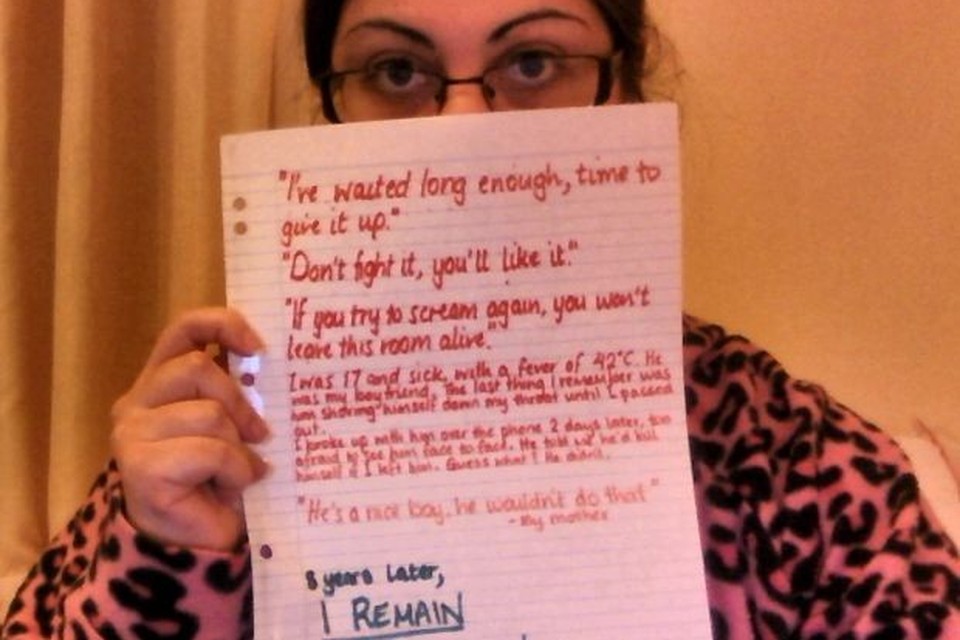 "I've waited long enough, time to
give it up."
"Don't fight it, you'll like it."
"If you try to scream again, you won't
leave this room alive."
I was 17 and sick, with a fever of 42°C. He
was my boyfriend. The last thing I remember was
him shoving himself down my throat until I passed
out.
I broke up with him over the phone 2 days later, too
afraid to see him face to face. He told me he'd kill
himself if I left him. Guess what? He didn't.
"He's a nice boy, he wouldn't do that"
- My mother
8 years later,
I REMAIN